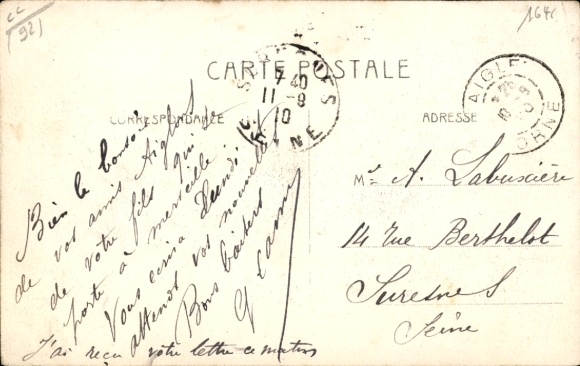 cc
(92)
164
CARTE POSTALE
CORRESPONDANCE
ADRESSE
SURESNES
7 40
11 - 9
10
SEINE
AIGLE
10 - 9
10
ORNE
Bien le bonsoir
de vos amis Aiglons
de votre fils qui se
porte à merveille
Vous écrira Lundi
attends vos nouvelles
Bons baisers
J'ai reçu votre lettre ce matin
Mr A. Labussière
14 Rue Berthelot
Suresnes
Seine